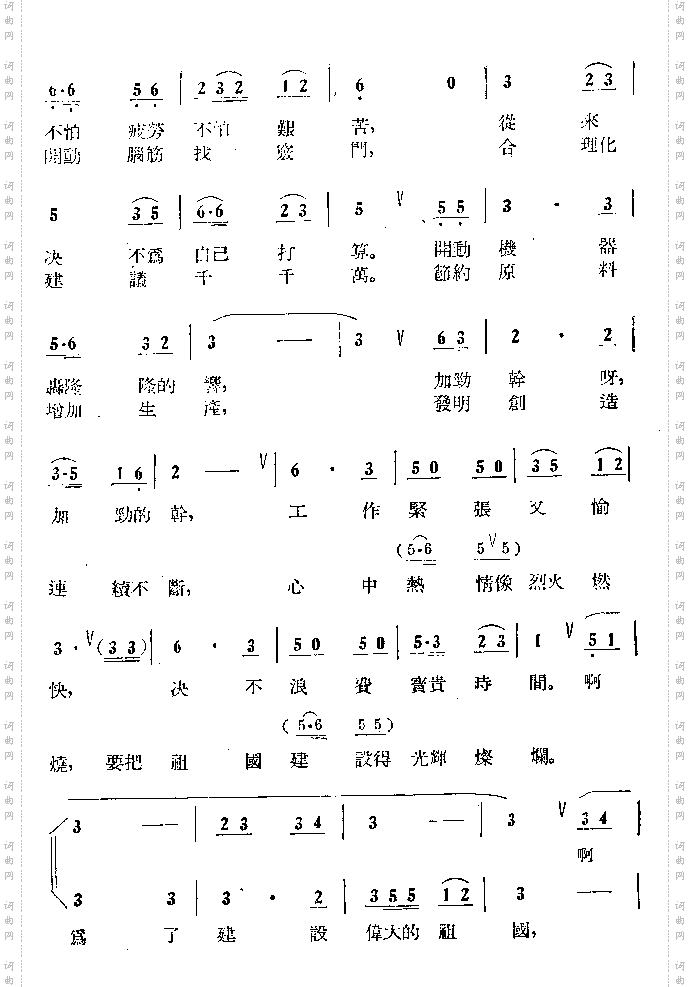 6·6 5 6 | 2 3 2 1 2 | 6 0 | 3 2 3 |
不怕 疲勞 不怕 艱 苦, 從 來
開動 腦筋 找 竅 門, 合 理化
5 3 5 | 6·6 2 3 | 5 V 5 5 | 3 · 3 |
决 不爲 自己 打 算。 開動 機 器
建 議 千 千 萬。 節約 原 料
5·6 3 2 | 3 — | 3 V 6 3 | 2 · 2 |
轟隆 隆的 響, 加勁 幹 呀,
增加 生 產, 發明 創 造
3·5 1 6 | 2 — V | 6 · 3 | 5 0 5 0 | 3 5 1 2 |
加 勁的 幹, 工 作 緊 張 又 愉
(5·6 5 V 5)
連 續不 斷, 心 中 熱 情像 烈火 燃
3 · V (3 3) | 6 · 3 | 5 0 5 0 | 5·3 2 3 | 1 V 5 1 |
快, 决 不 浪 費 寳貴 時 間。啊
(5·6 5 5)
燒, 要把 祖 國 建 設得 光輝 燦 爛。
3 — | 2 3 3 4 | 3 — | 3 V 3 4 |
啊
3 3 | 3 · 2 | 3 5 5 1 2 | 3 · |
爲 了 建 設 偉大的 祖 國,
词曲网